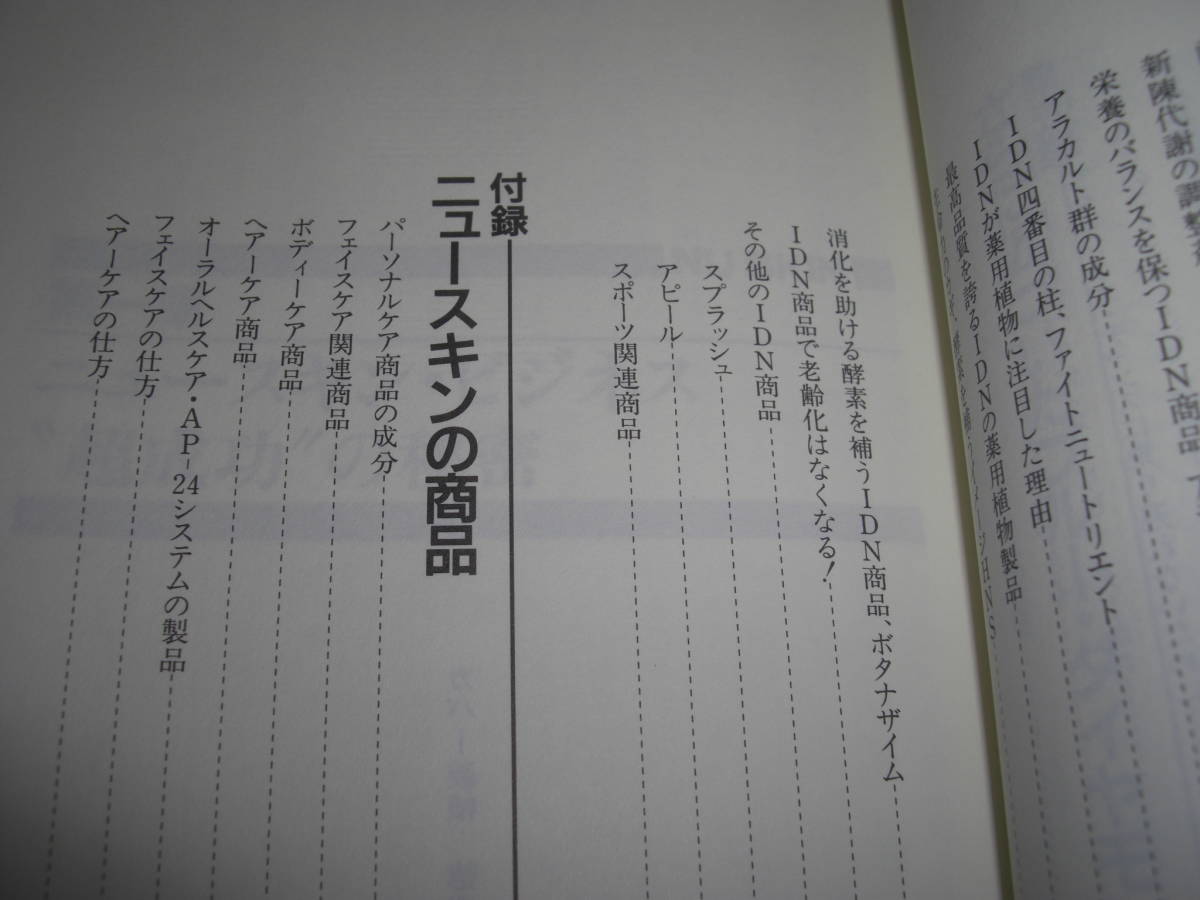 新陳代謝の調整
栄養のバランスを保つIDN商品
アラカルト群の成分
IDN四番目の柱、ファイトニュートリエント
IDNが薬用植物に注目した理由
最高品質を誇るIDNの薬用植物製品
消化を助ける酵素を補うIDN商品、ボタナザイム
IDN商品で老齢化はなくなる!
その他のIDN商品
スプラッシュ
アピール
スポーツ関連商品
付録
ニュースキンの商品
パーソナルケア商品の成分
フェイスケア関連商品
ボディーケア商品
ヘアーケア商品
オーラルヘルスケア・AP-24システムの製品
フェイスケアの仕方
ヘアーケアの仕方